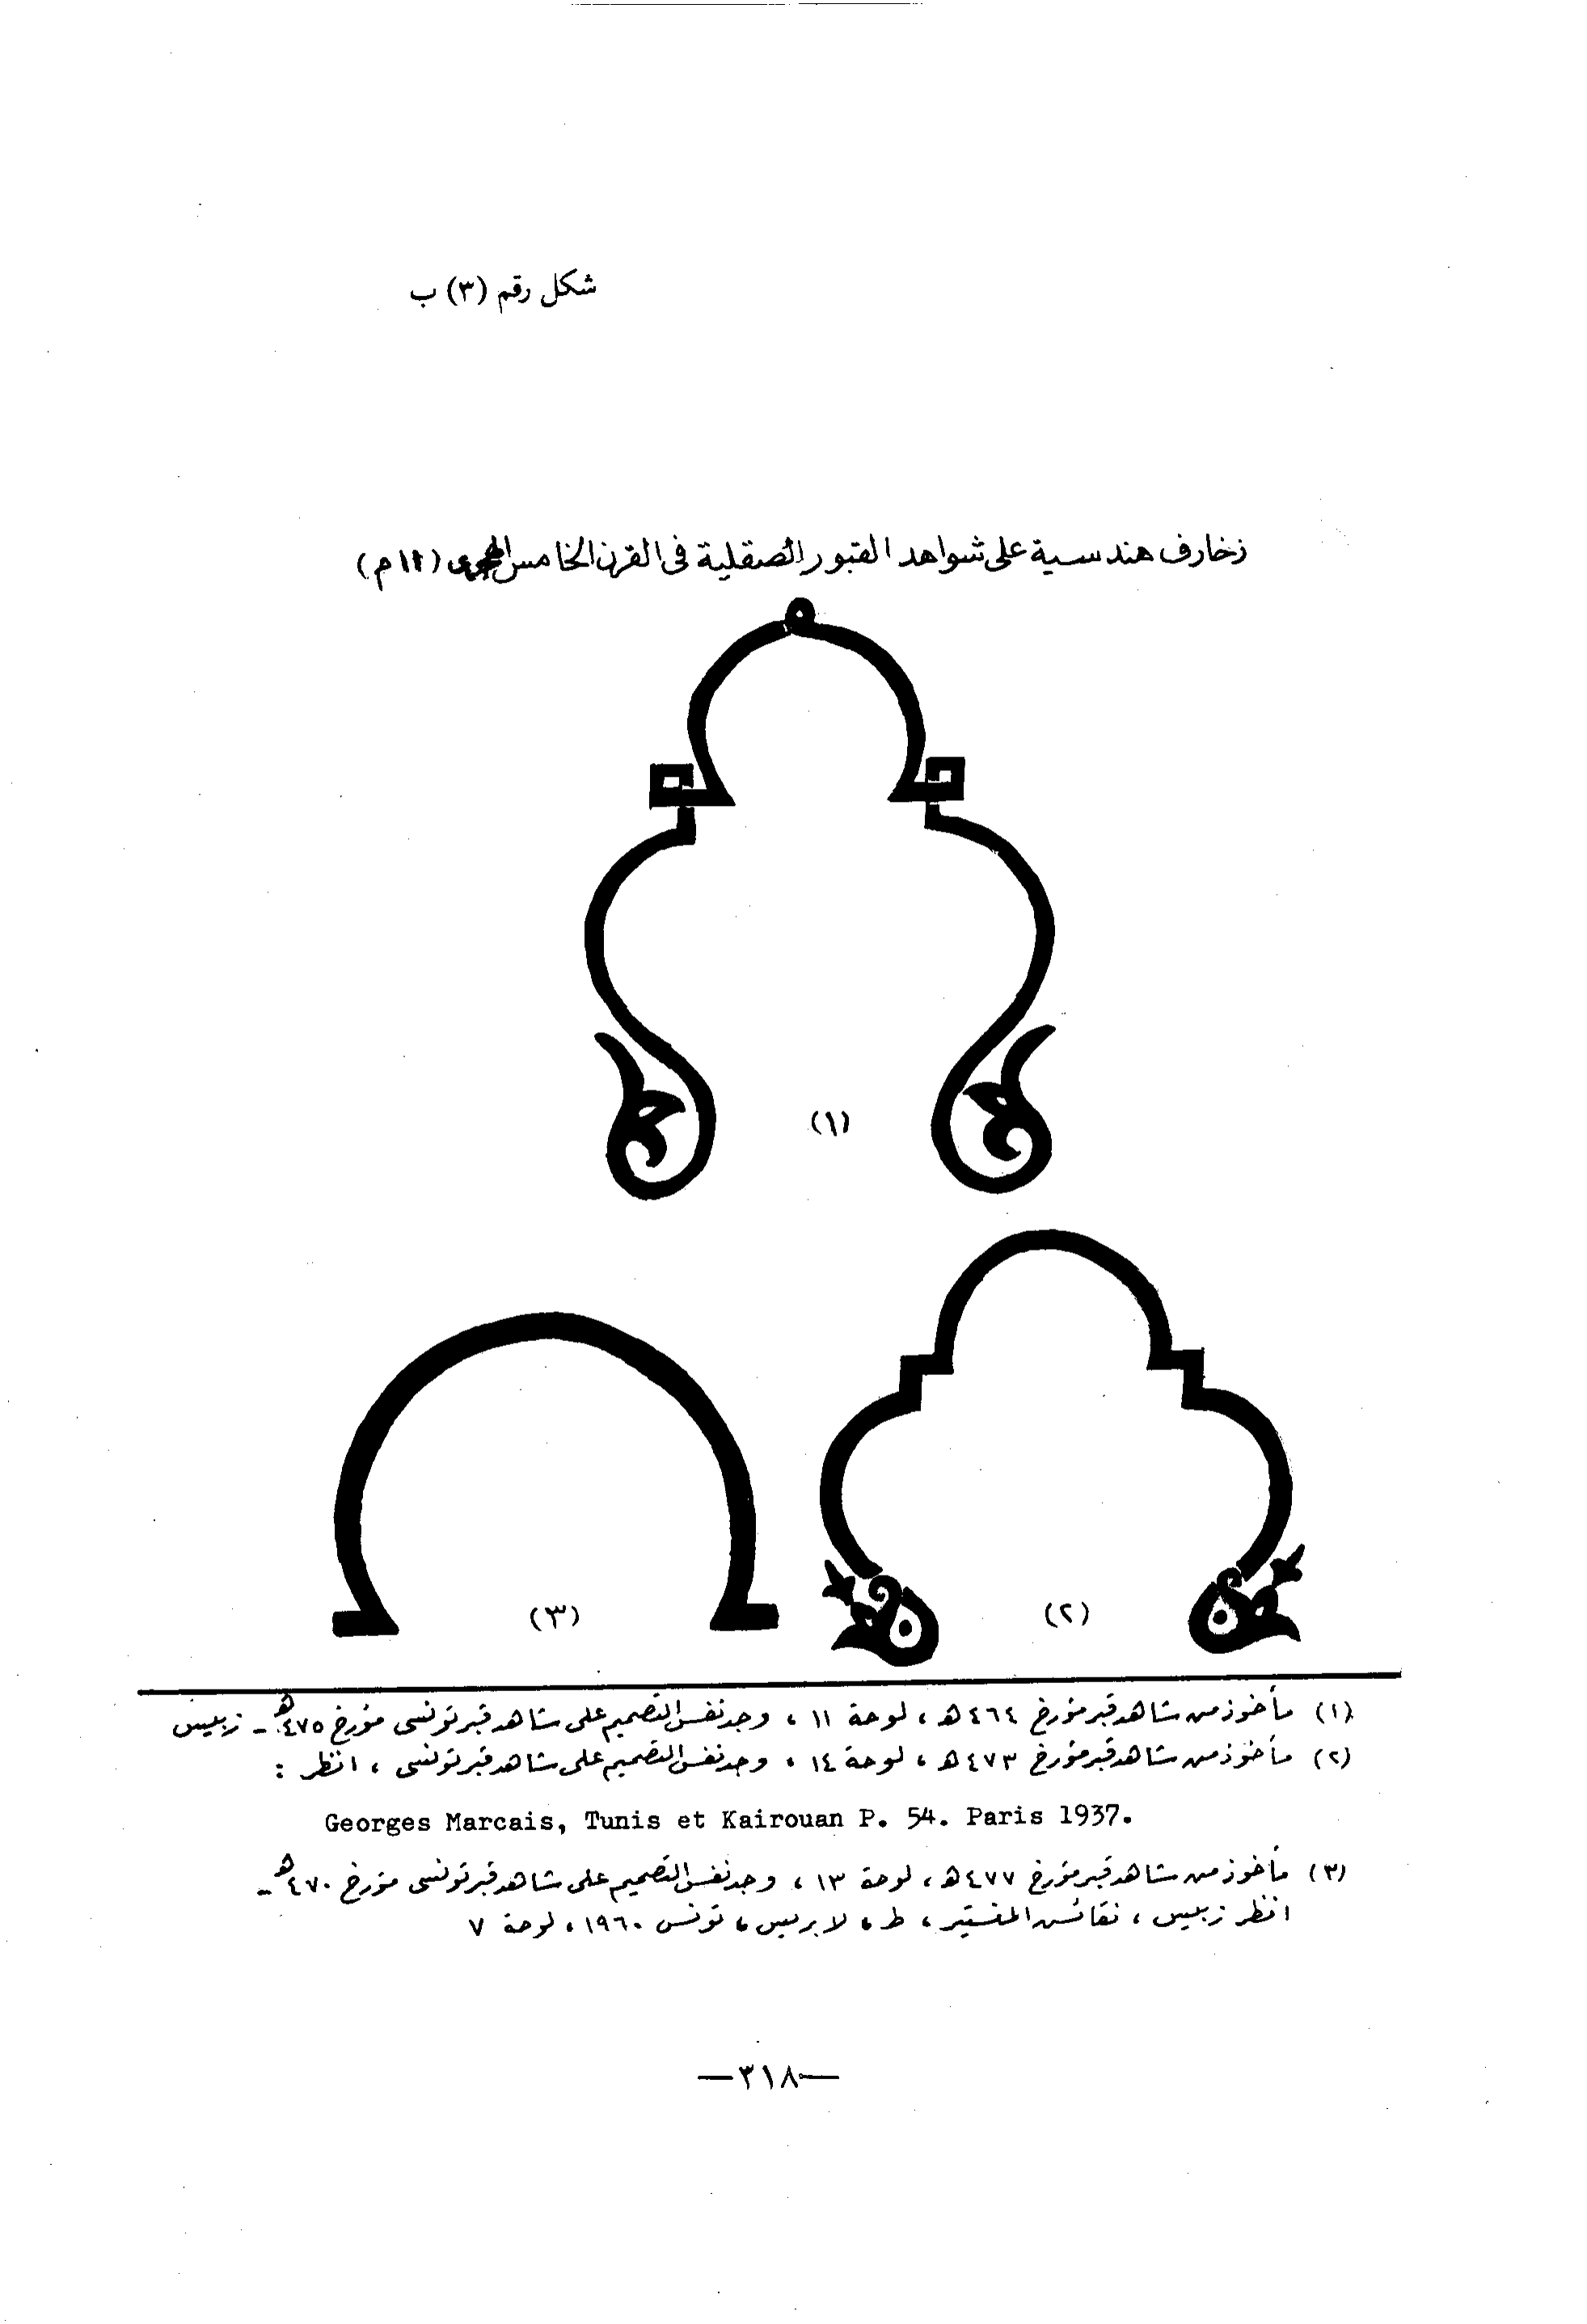 شكل رقم (٣) ب
زخارف هندسية على شواهد القبور الصقلية فى القرن الخامس الهجرى (١١م)
(١)
(٢)
(٣)
(١) مأخوذ من شاهد قبر مؤرخ ٤٦٤ هـ، لوحة ١١ ، وجد نفس التصميم على شاهد قبر تونسى مؤرخ ٤٧٥ هـ - زبيس
(٢) مأخوذ من شاهد قبر مؤرخ ٤٧٣ هـ، لوحة ١٤ ، وجد نفس التصميم على شاهد قبر تونسى ، انظر :
Georges Marcais, Tunis et Kairouan P. 54. Paris 1937.
(٣) مأخوذ من شاهد قبر مؤرخ ٤٧٧ هـ، لوحة ١٣ ، وجد نفس التصميم على شاهد قبر تونسى مؤرخ ٤٧٠ هـ -
انظر زبيس ، نقائش المنستير ، ط ، لابريس ، تونس ١٩٦٠، لوحة ٧
—٣١٨—